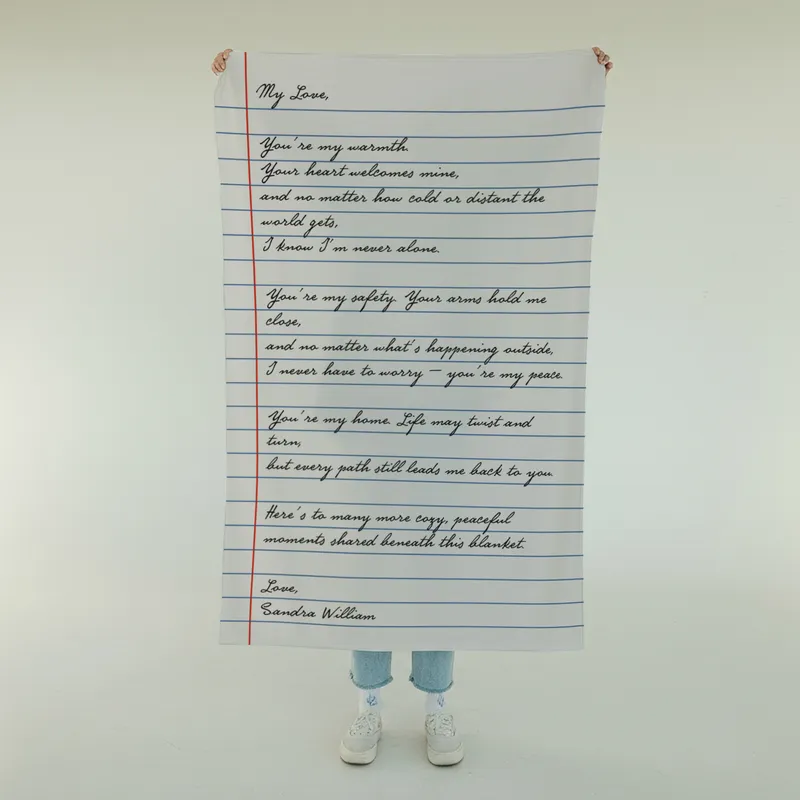 My Love,
You're my warmth.
Your heart welcomes mine,
and no matter how cold or distant the
world gets,
I know I'm never alone.
You're my safety. Your arms hold me
close,
and no matter what's happening outside,
I never have to worry — you're my peace.
You're my home. Life may twist and
turn,
but every path still leads me back to you.
Here's to many more cozy, peaceful
moments shared beneath this blanket.
Love,
Sandra William